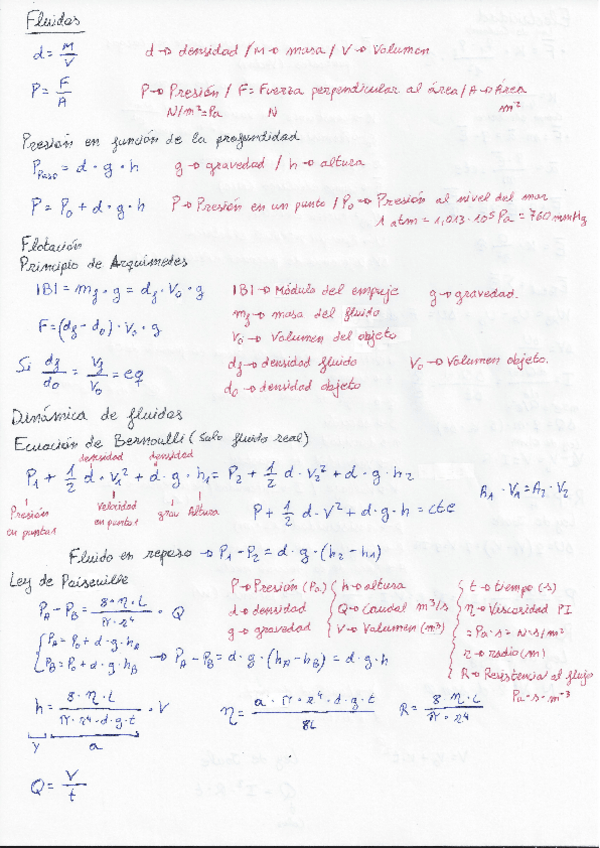 Fluidos
d = M/V d → densidad / M → masa / V → Volumen
P = F/A P → Presión / F = Fuerza perpendicular al área / A → Área
N/m² = Pa N m²
Presión en función de la profundidad
P_Peso = d · g · h g → gravedad / h → altura
P = P₀ + d · g · h P → Presión en un punto / P₀ → Presión al nivel del mar
1 atm = 1,013 · 10⁵ Pa = 760 mmHg
Flotación
Principio de Arquímedes
|B| = m_f · g = d_f · V₀ · g |B| → Módulo del empuje g → gravedad.
m_f → masa del fluido
F = (d_f - d₀) · V₀ · g V₀ → Volumen del objeto
Si d_f/d₀ = V_f/V₀ = eq d_f → densidad fluido V₀ → Volumen objeto.
d₀ → densidad objeto
Dinámica de fluidos
Ecuación de Bernoulli (Solo fluido real)
densidad densidad
P₁ + 1/2 d · V₁² + d · g · h₁ = P₂ + 1/2 d · V₂² + d · g · h₂ A₁ · V₁ = A₂ · V₂
Presión en punto 1 Velocidad en punto 1 grav Altura P + 1/2 d · V² + d · g · h = cte
Fluido en reposo → P₁ - P₂ = d · g · (h₂ - h₁)
Ley de Poiseuille
P_A - P_B = 8 · η · L / π · r⁴ · Q
P → Presión (Pa) h → altura t → tiempo (s)
d → densidad Q → Caudal m³/s η → Viscosidad PI
g → gravedad V → Volumen (m³) = Pa · s = N · s/m²
P_A = P₀ + d · g · h_A
P_B = P₀ + d · g · h_B → P_A - P_B = d · g · (h_A - h_B) = d · g · h
r → radio (m)
R → Resistencia al flujo
Pa · s · m⁻³
h = 8 · η · L / π · r⁴ · d · g · t · V η = a · π · r⁴ · d · g · t / 8L R = 8 · η · L / π · r⁴
y a
Q = V/t